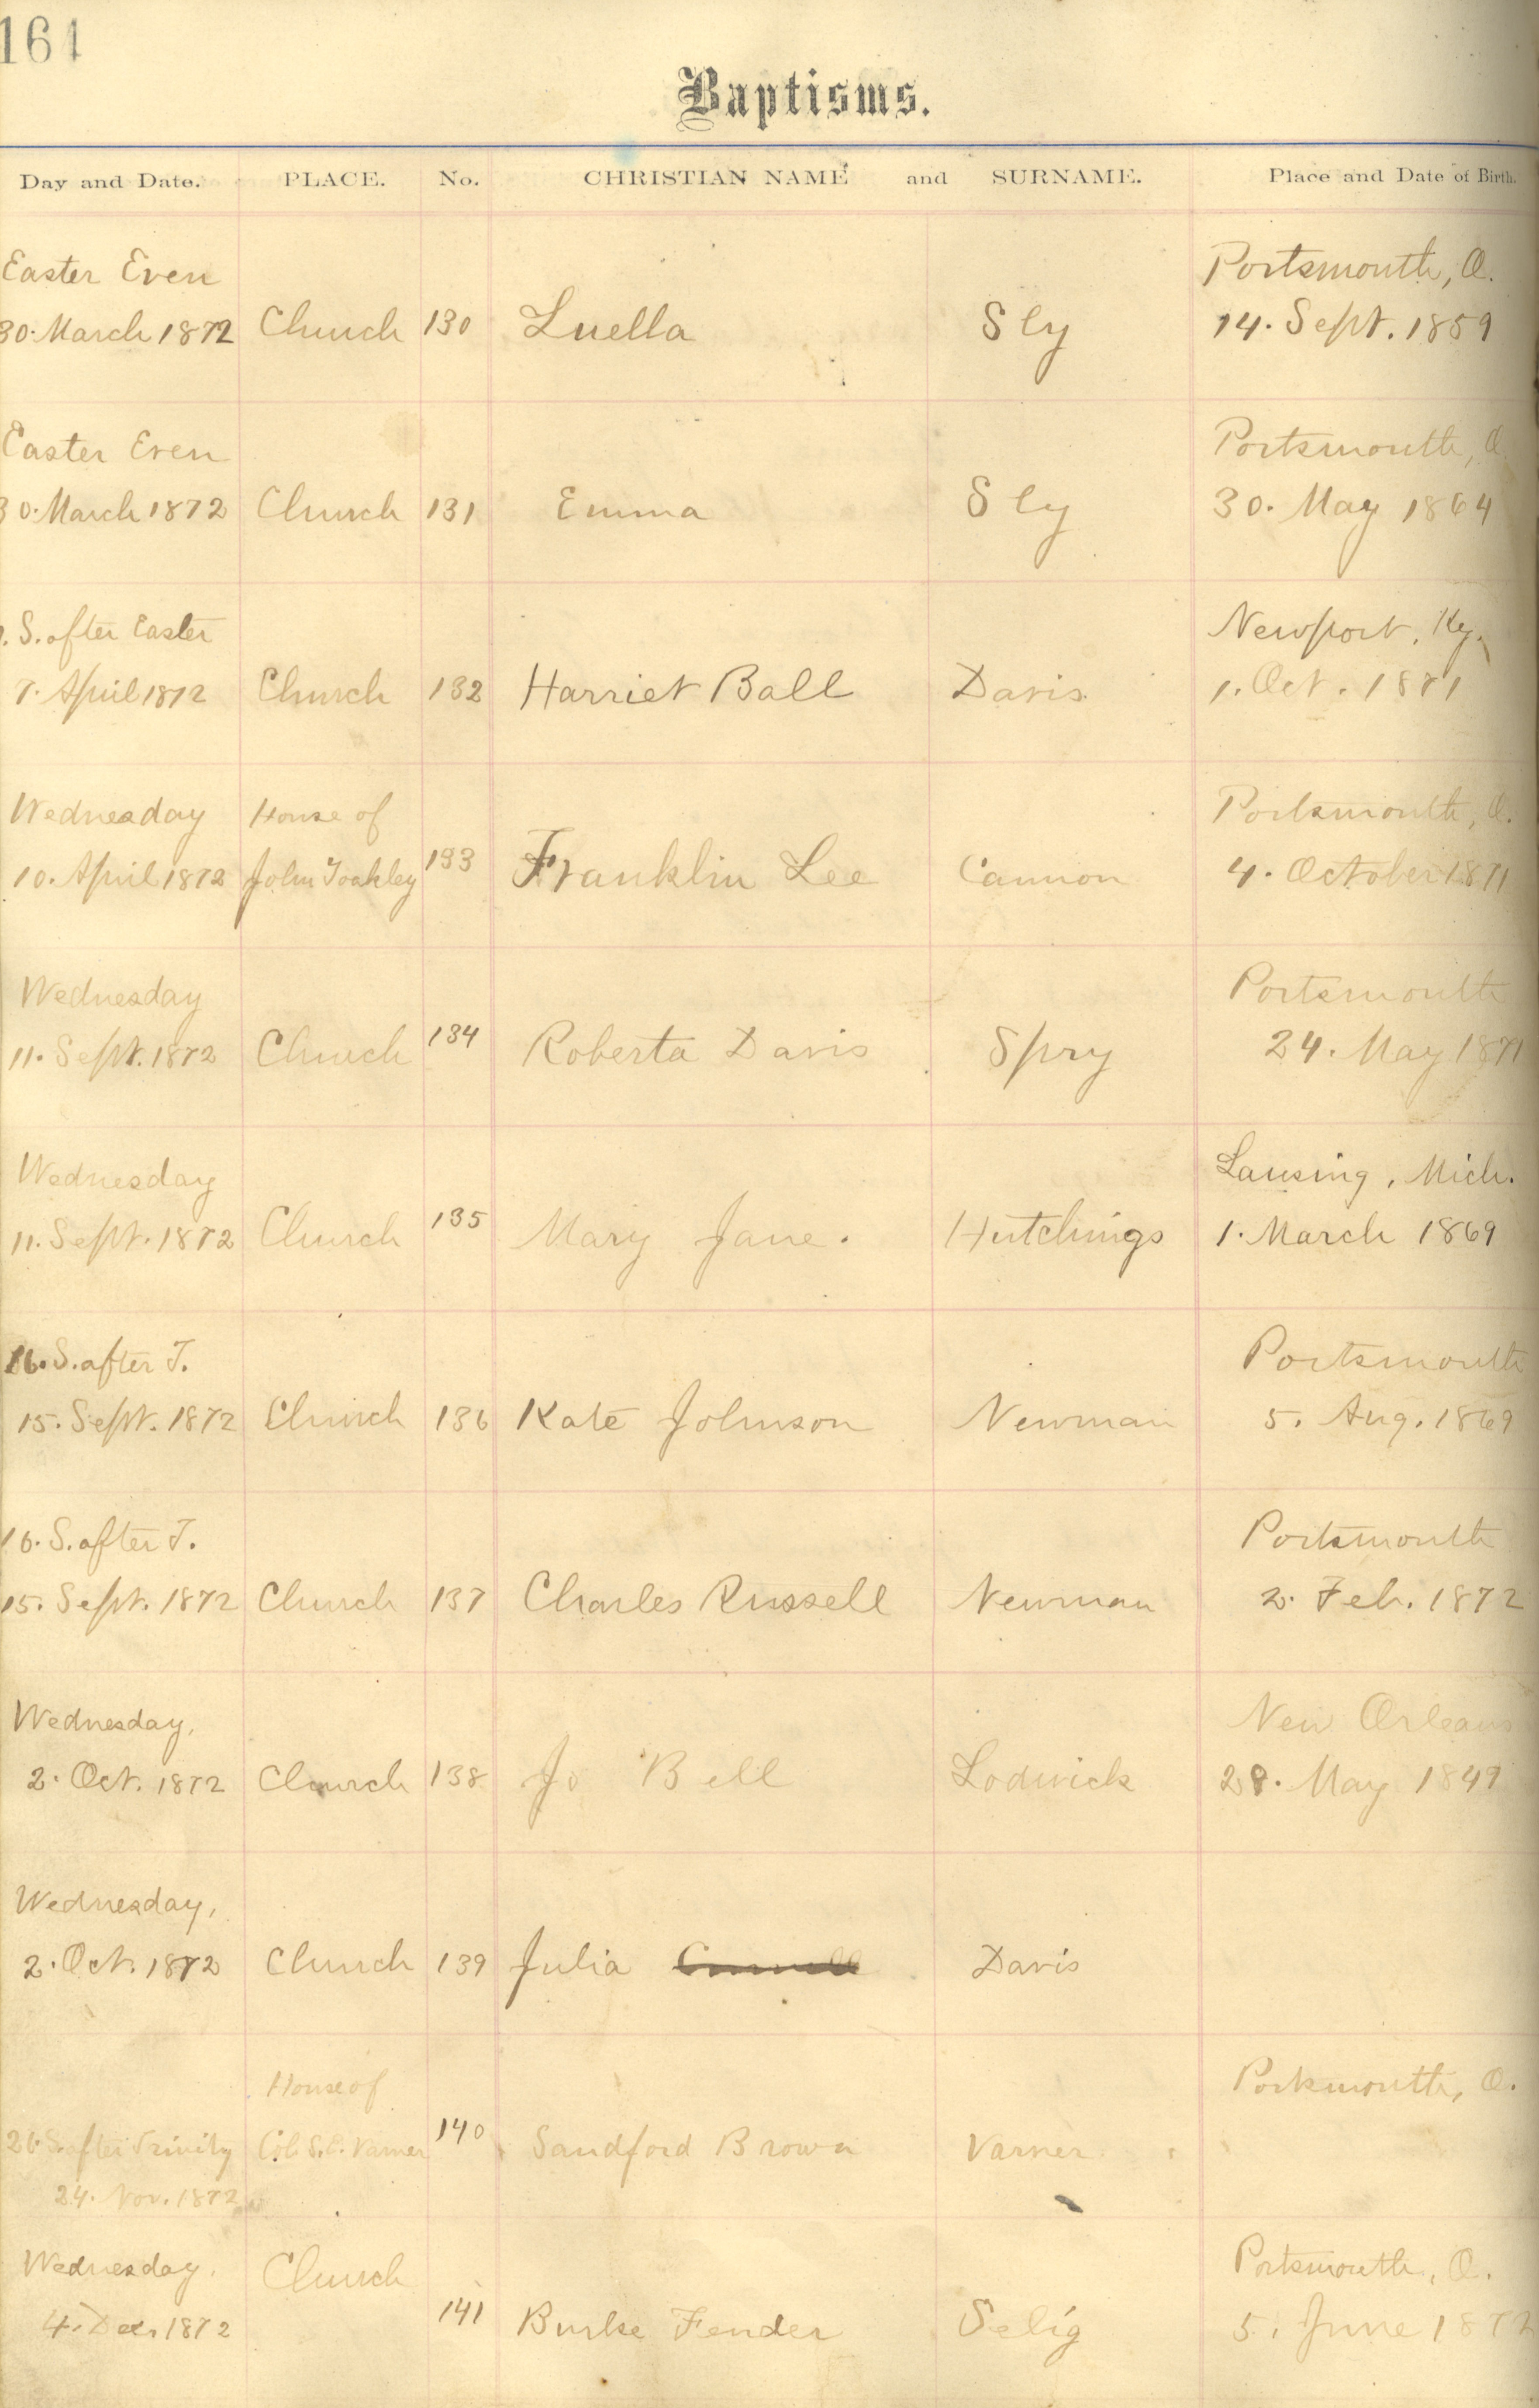 164
Baptisms.
Day and Date. PLACE. No. CHRISTIAN NAME and SURNAME. Place and Date of Birth.
Easter Even Portsmouth, O.
30. March 1872 Church 130 Luella Sly 14. Sept. 1859
Easter Even Portsmouth, O.
30. March 1872 Church 131 Emma Sly 30. May 1864
1. S. after Easter Newport, Ky.
7. April 1872 Church 132 Harriet Ball Davis 1. Oct. 1871
Wednesday House of Portsmouth, O.
10. April 1872 John Yoakley 133 Franklin Lee Cannon 4. October 1871
Wednesday Portsmouth
11. Sept. 1872 Church 134 Roberta Davis Spry 24. May 1871
Wednesday Lansing, Mich.
11. Sept. 1872 Church 135 Mary Jane. Hutchings 1. March 1869
16. S. after T. Portsmouth
15. Sept. 1872 Church 136 Kate Johnson Newman 5. Aug. 1869
16. S. after T. Portsmouth
15. Sept. 1872 Church 137 Charles Russell Newman 2. Feb. 1872
Wednesday, New Orleans
2. Oct. 1872 Church 138 Jo Bell Lodwick 28. May 1849
Wednesday,
2. Oct. 1872 Church 139 Julia Davis
House of Portsmouth, O.
26. S. after Trinity Col. S. E. Varner 140 Sandford Brown Varner
24. Nov. 1872
Wednesday, Church Portsmouth, O.
4. Dec. 1872 141 Burke Fender Selig 5. June 1872